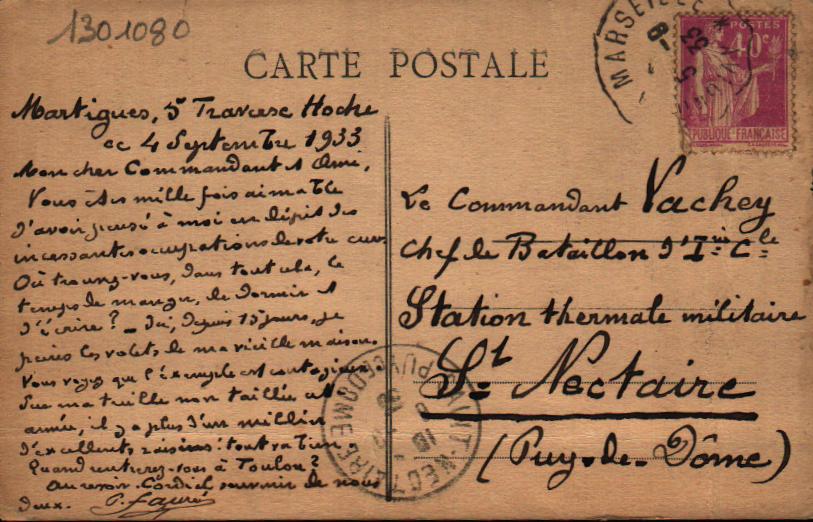 1301080
CARTE POSTALE
MARSEILLE
POSTES
40c
REPUBLIQUE FRANÇAISE
Martigues, 5 Traverse Hoche
ce 4 Septembre 1933
Mon cher Commandant & Ami,
Vous êtes mille fois aimable
d'avoir pensé à moi en dépit des
incessantes occupations de votre cure
Où trouvez-vous, dans tout cela, le
temps de manger, de dormir &
d'écrire ? — Ici, depuis 15 jours, je
peins les volets de ma vieille maison.
Vous voyez que l'exemple est contagieux.
Sur ma treille non taillée cet
année, il y a plus d'un millier
d'excellents raisins: tout va bien
Quand rentrez-vous à Toulon ?
Au revoir. Cordial souvenir de nous
deux.
Le Commandant Vachey
Chef de Bataillon d'Irie Cle
Station thermale militaire
St Nectaire
(Puy-de-Dôme)
SAINT-NECTAIRE
PUY DE DOME